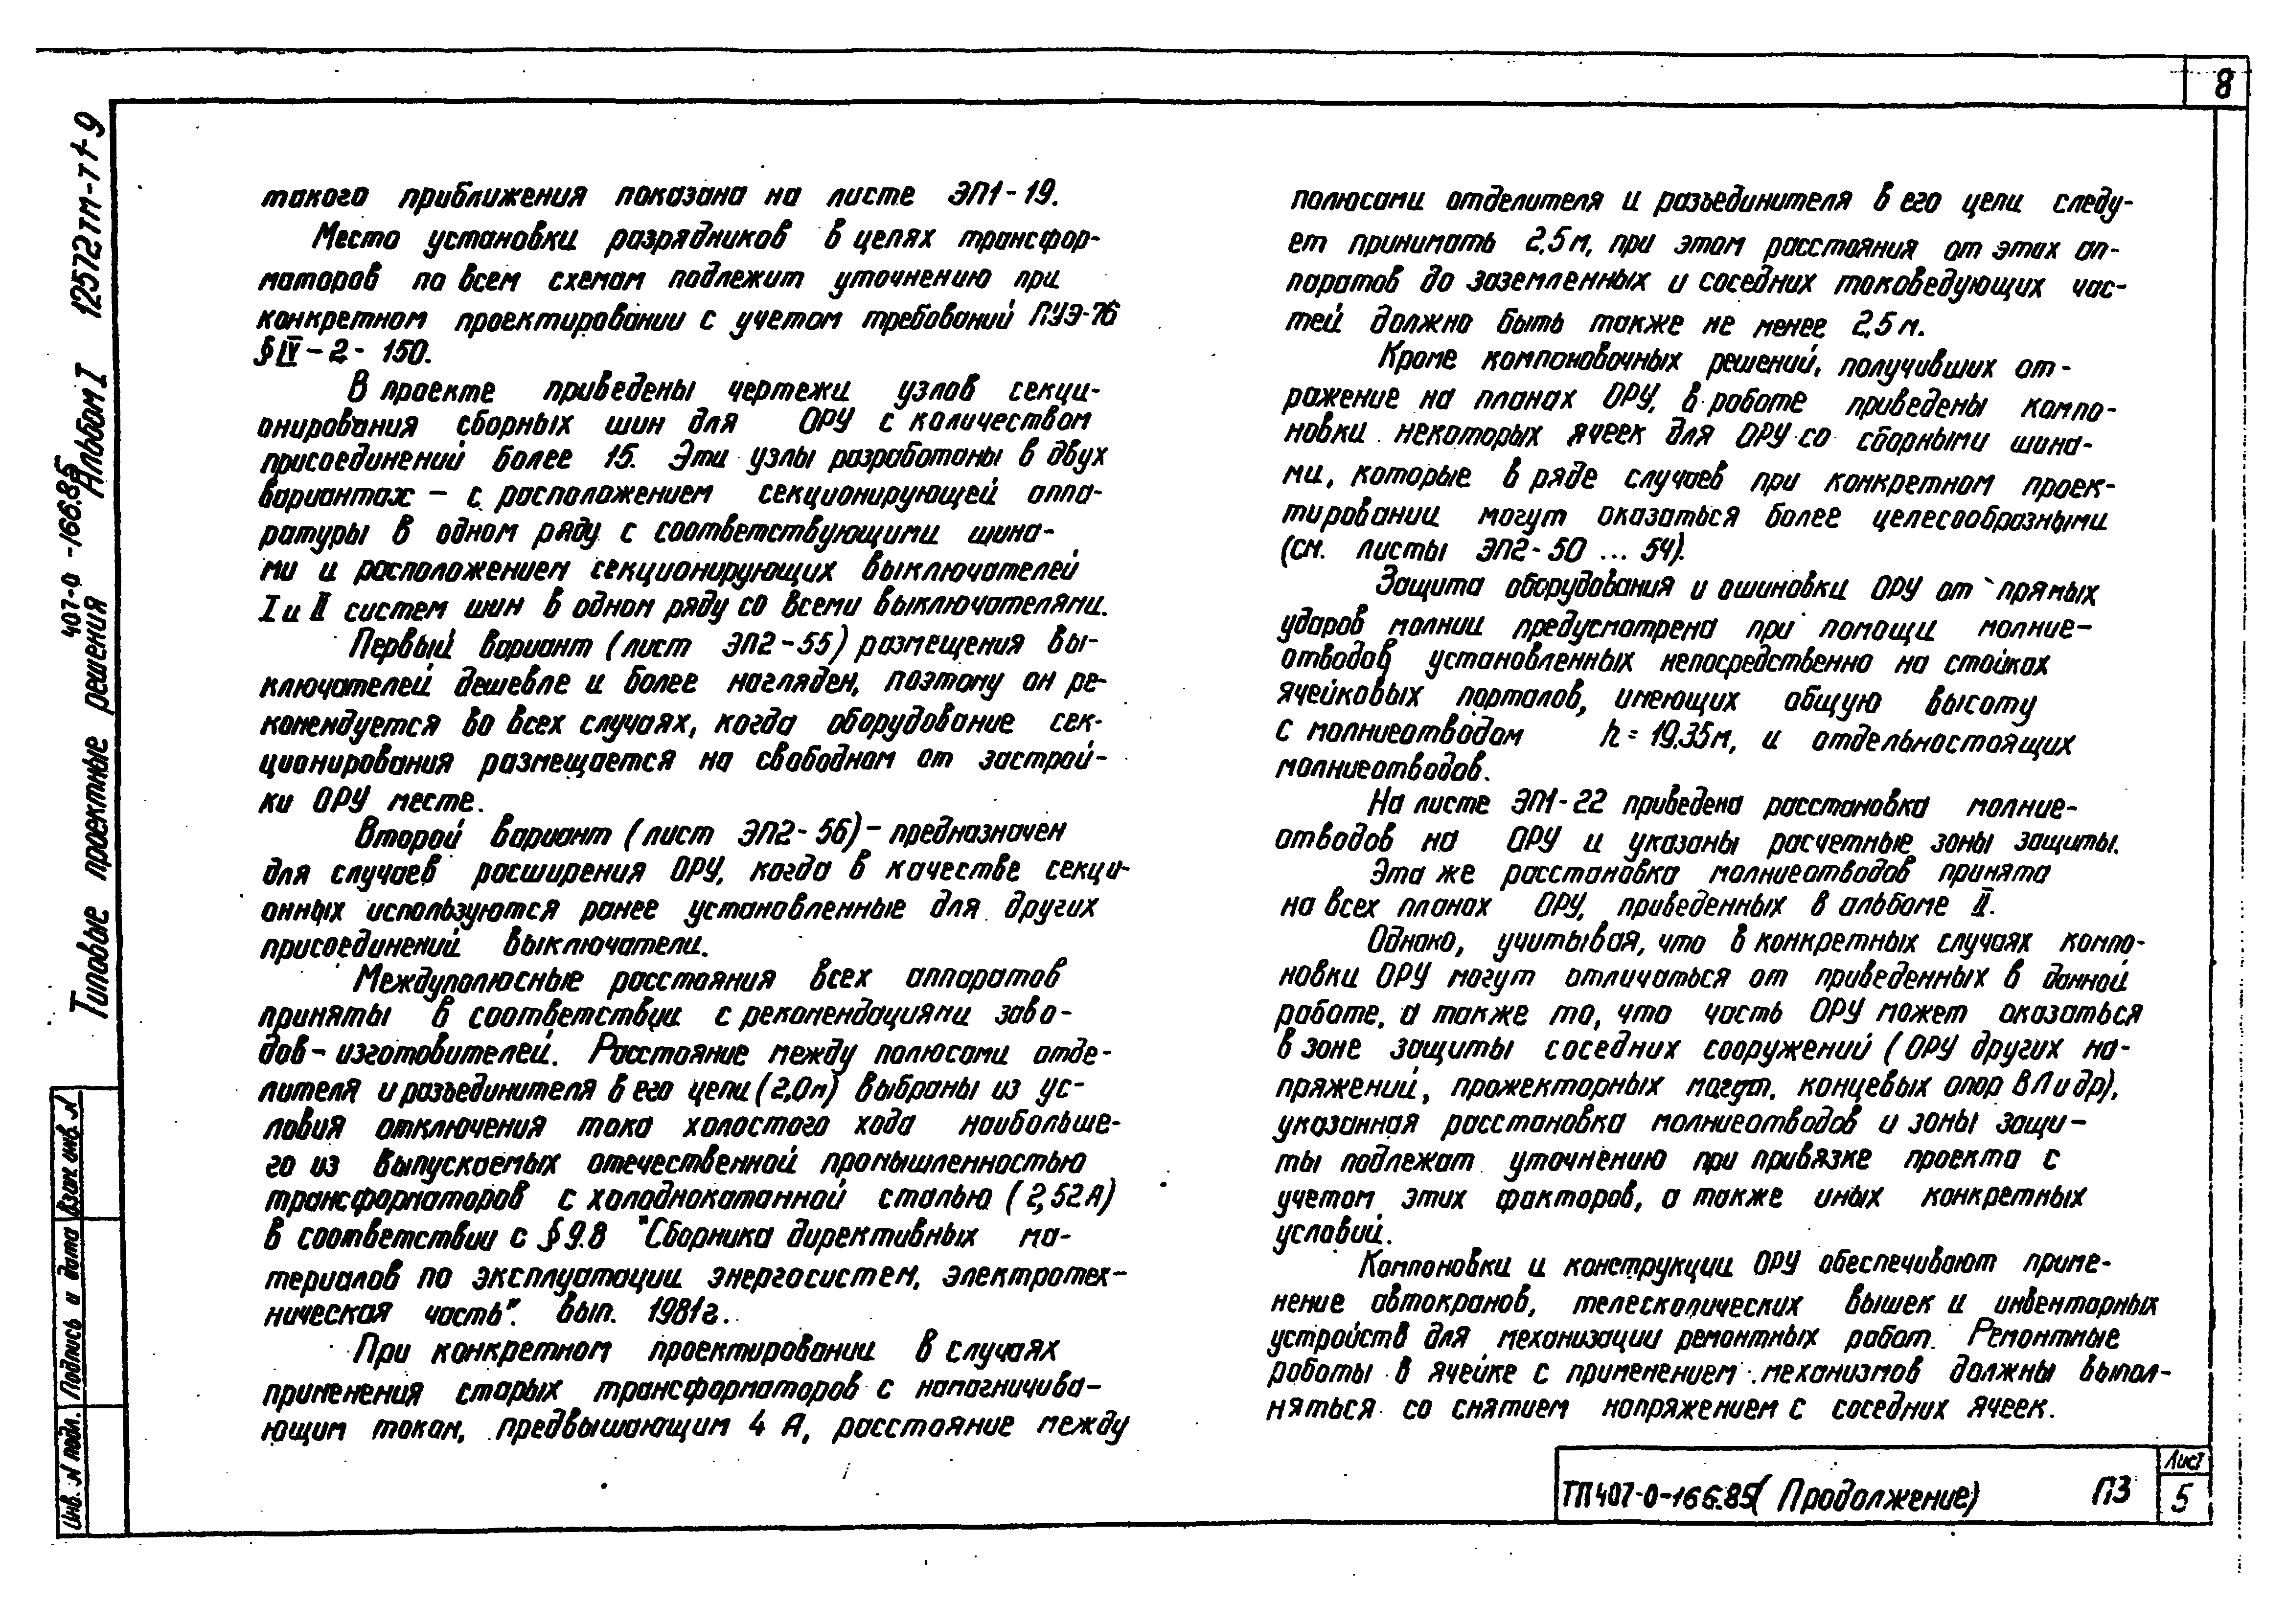 8
такого приближения показана на листе ЭП1-19.
Место установки разрядников в цепях трансфор-
маторов по всем схемам подлежит уточнению при
конкретном проектировании с учетом требований ПУЭ-76
§ IV-2-150.
В проекте приведены чертежи узлов секци-
онирования сборных шин для ОРУ с количеством
присоединений более 15. Эти узлы разработаны в двух
вариантах – с расположением секционирующей аппа-
ратуры в одном ряду с соответствующими шина-
ми и расположением секционирующих выключателей
I и II систем шин в одном ряду со всеми выключателями.
Первый вариант (лист ЭП2-55) размещения вы-
ключателей дешевле и более нагляден, поэтому он ре-
комендуется во всех случаях, когда оборудование сек-
ционирования размещается на свободном от застрой-
ки ОРУ месте.
Второй вариант (лист ЭП2-56) – предназначен
для случаев расширения ОРУ, когда в качестве секци-
онных используются ранее установленные для других
присоединений выключатели.
Междуполюсные расстояния всех аппаратов
приняты в соответствии с рекомендациями заво-
дов-изготовителей. Расстояние между полюсами отде-
лителя и разъединителя в его цепи (2,0м) выбраны из ус-
ловия отключения тока холостого хода наибольше-
го из выпускаемых отечественной промышленностью
трансформаторов с холоднокатанной сталью (2,52А)
в соответствии с § 9.8 "Сборника директивных ма-
териалов по эксплуатации энергосистем, электротех-
ническая часть". вып. 1981г.
При конкретном проектировании в случаях
применения старых трансформаторов с намагничива-
ющим током, предвышающим 4 А, расстояние между
полюсами отделителя и разъединителя в его цепи следу-
ет принимать 2,5м, при этом расстояния от этих ап-
паратов до заземленных и соседних токоведующих час-
тей должно быть также не менее 2,5м.
Кроме компоновочных решений, получивших от-
ражение на планах ОРУ, в работе приведены компо-
новки некоторых ячеек для ОРУ со сборными шина-
ми, которые в ряде случаев при конкретном проек-
тировании могут оказаться более целесообразными
(см. листы ЭП2-50 ... 54).
Защита оборудования и ошиновки ОРУ от прямых
ударов молнии предусмотрена при помощи молние-
отводов, установленных непосредственно на стойках
ячейковых порталов, имеющих общую высоту
с молниеотводом h = 19.35м, и отдельностоящих
молниеотводов.
На листе ЭП1-22 приведена расстановка молние-
отводов на ОРУ и указаны расчетные зоны защиты.
Эта же расстановка молниеотводов принята
на всех планах ОРУ, приведенных в альбоме II.
Однако, учитывая, что в конкретных случаях компо-
новки ОРУ могут отличаться от приведенных в данной
работе, а также то, что часть ОРУ может оказаться
в зоне защиты соседних сооружений (ОРУ других на-
пряжений, прожекторных мачт, концевых опор ВЛ и др),
указанная расстановка молниеотводов и зоны защи-
ты подлежат уточнению при привязке проекта с
учетом этих факторов, а также иных конкретных
условий.
Компоновки и конструкции ОРУ обеспечивают приме-
нение автокранов, телескопических вышек и инвентарных
устройств для механизации ремонтных работ. Ремонтные
работы в ячейке с применением механизмов должны выпол-
няться со снятием напряжением с соседних ячеек.
Типовые проектные решения 407-0-166.85 Альбом I 12572тм-т1-9
Взам. инв. N
Подпись и дата
Инв. N подл.
ТП407-0-166.85 (Продолжение) ПЗ
Лист
5